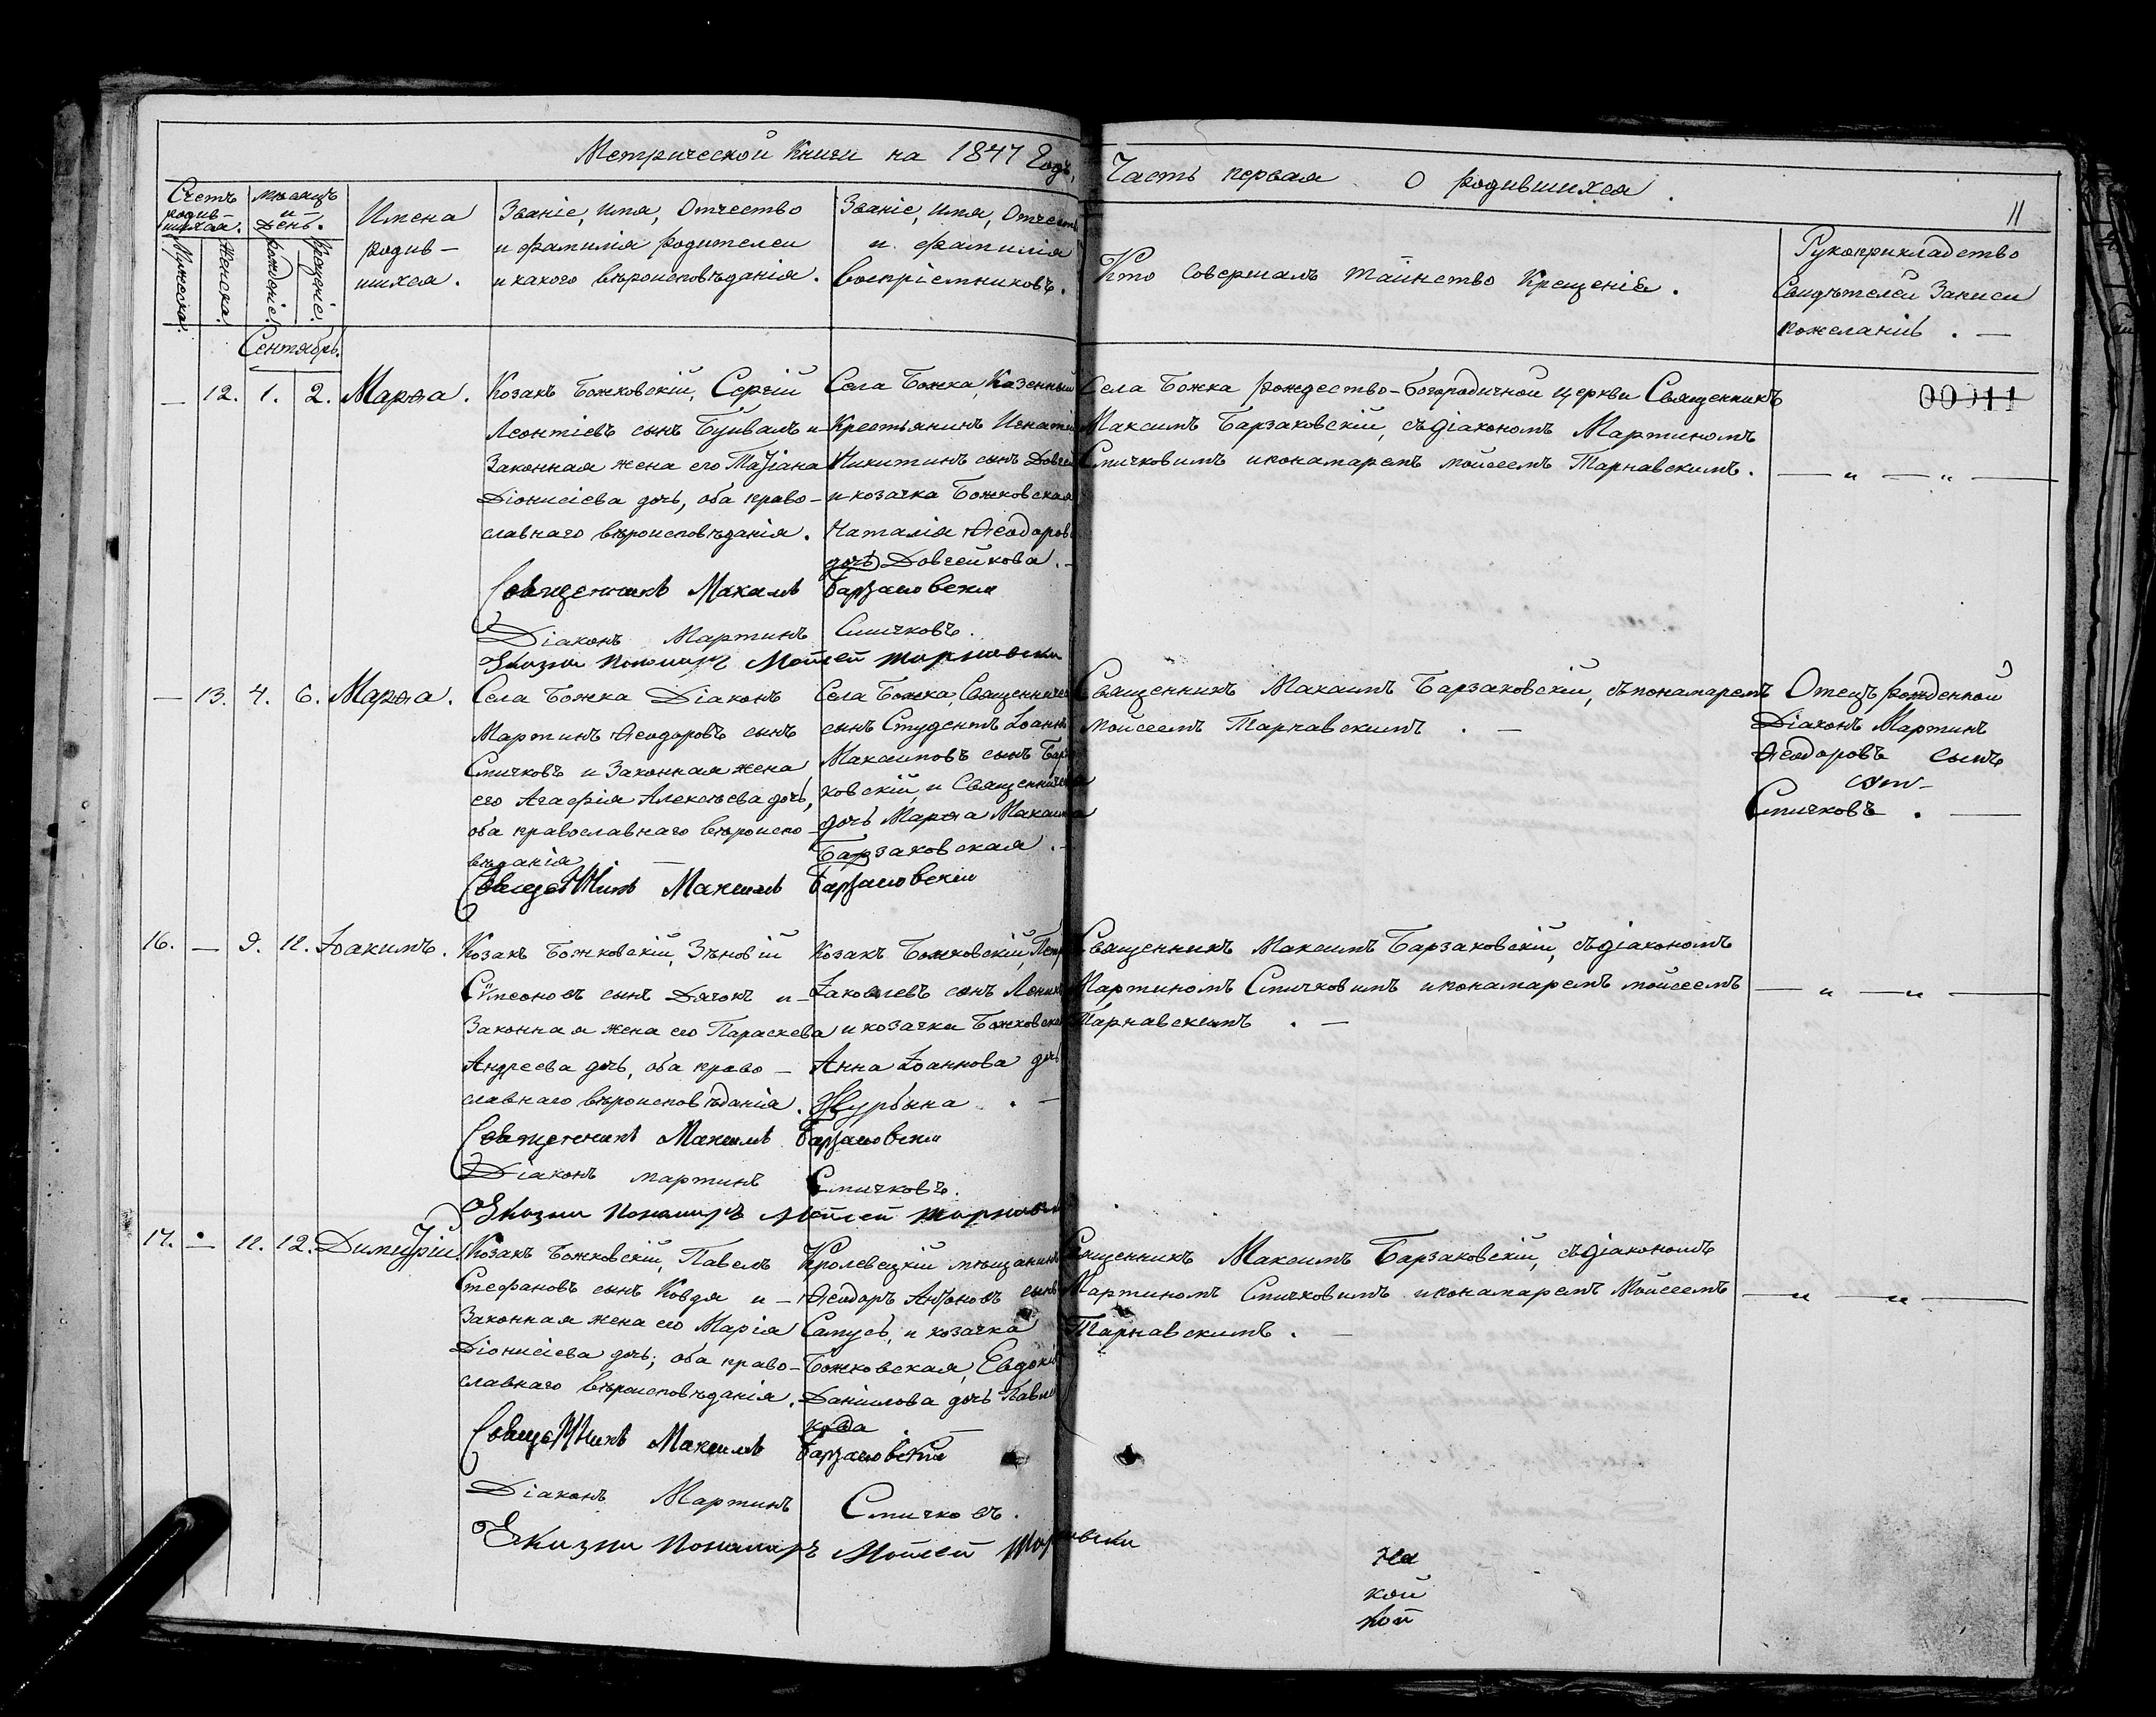 Метрической Книги на 1847 Годъ,
Часть первая О родившихся.
11
Счетъ родив-шихся.
Мужеска.
Женска.
Мѣсяцъ и день.
рожденіе.
крещеніе.
Имена
родив-
шихся.
Званіе, имя, Отчество
и фамилія родителей
и какого вѣроисповѣданія.
Званіе, имя, Отчество
и фамилія
воспріемниковъ.
Кто совершалъ таинство Крещенія.
Рукоприкладство
Свидѣтелей Записи
по желанію. —
Сентябрь.
— 12. 1. 2. Марѳа.
Козакъ Божковскій, Сергій
Леонтіевъ сынъ Буивалъ и
Законная жена его Татіана
Діонисіева дочь, оба право-
славнаго вѣроисповѣданія.
Села Божка, Казенный
Крестьянинъ Игнатій
Никитинъ сынъ
и козачка Божковская
Наталія Ѳеодоров
дочь Довгейкова. -
Села Божка рождество-богородичной церкви Священникъ
Максимъ Барзаковскій, съ діакономъ Мартиномъ
Смичковимъ и понамаремъ Мойсеемъ Тарнавскимъ.
00011
— " — " —
Священникъ Максимъ Барзаковскій
Діаконъ Мартинъ Смичковъ.
Пономаръ Мойсей Тарнавски
— 13. 4. 6. Марѳа.
Села Божка Діаконъ
Мартинъ Ѳеодоровъ сынъ
Смичковъ и Законная жена
его Агафія Алексѣева дочь,
оба православнаго вѣроиспо-
вѣданія —
Села Божка, Священническ
сынъ Студентъ Іоаннъ
Максимовъ сынъ Барза
ковскій, и Священническа
дочь Марѳа Максима
Барзаковская. -
Священникъ Максимъ Барзаковскій, съ понамаремъ
Мойсеемъ Тарнавскимъ. —
Отецъ рожденной
Діаконъ Мартинъ
Ѳеодоровъ сынъ
Смичковъ. —
Священникъ Максимъ Барзаковскій
16. — 9. 11. Іоакимъ.
Козакъ Божковскій, Зѣновій
Симеоновъ сынъ Дячокъ и
Законная жена его Параскева
Андреева дочь, оба право-
славнаго вѣроисповѣданія.
Козакъ Божковскій, Петр
Іаковлевъ сынъ
и козачка Божковска
Анна Іоаннова дочь
Журбина. —
Священникъ Максимъ Барзаковскій, съ діакономъ
Мартиномъ Смичковимъ и понамаремъ Мойсеемъ
Тарнавскимъ. —
— " — " —
Священникъ Максимъ Барзаковски
Діаконъ Мартинъ Смичковъ.
Пономаръ Мойсей Тарнавски
17. — 11. 12. Димитрій.
Козакъ Божковскій, Павелъ
Стефановъ сынъ Ковдя и -
Законная жена его Марія
Діонисіева дочь; оба право-
славнаго вѣроисповѣданія.
Кролевецкій мѣщанинъ
Ѳеодоръ Антоновъ сынъ
Самусь, и козачка
Божковская, Евдокія
Даніилова дочь Павли
кова —
Священникъ Максимъ Барзаковскій, съ діакономъ
Мартиномъ Смичковимъ и понамаремъ Мойсеемъ
Тарнавскимъ. —
— " — " —
Священникъ Максимъ Барзаковскій
Діаконъ Мартинъ Смичковъ.
Пономаръ Мойсей Тарнавски
На
кой